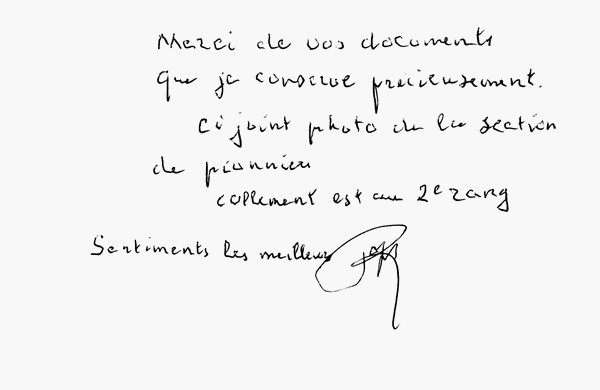 Merci de vos documents
que je conserve précieusement.
Ci joint photo de la section
de pionniers
collement est au 2e rang
Sentiments les meilleurs